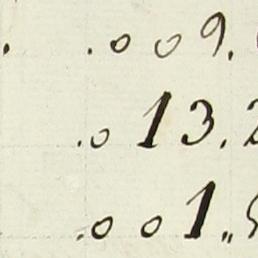 . .009.
.013.2
.001,,5